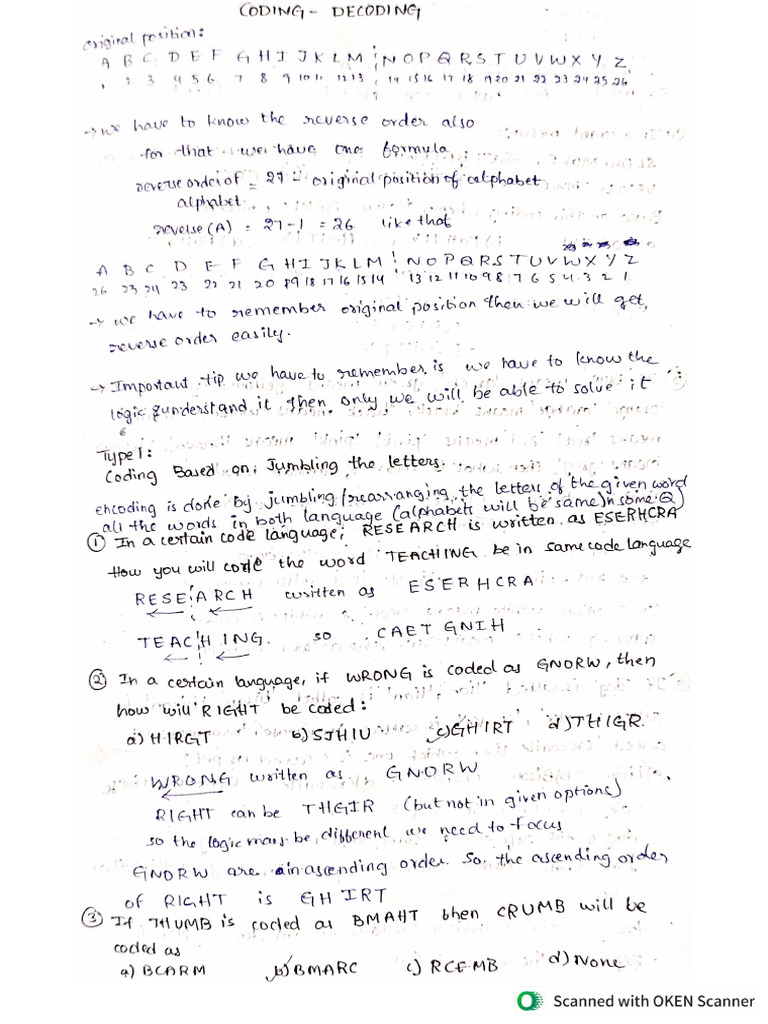 CODING - DECODING
original position:
A B C D E F G H I J K L M N O P Q R S T U V W X Y Z
1 2 3 4 5 6 7 8 9 10 11 12 13 14 15 16 17 18 19 20 21 22 23 24 25 26
→ we have to know the reverse order also
for that we have one formula
reverse order of = 27 - original position of alphabet
alphabet
reverse (A) = 27-1 = 26 like that
A B C D E F G H I J K L M N O P Q R S T U V W X Y Z
26 23 24 23 22 21 20 19 18 17 16 15 14 13 12 11 10 9 8 7 6 5 4 3 2 1
→ we have to remember original position then we will get
reverse order easily.
→ Important tip we have to remember is we have to know the
logic & understand it then only we will be able to solve it
Type 1:
Coding Based on Jumbling the letters.
encoding is done by jumbling/rearranging the letters of the given word
all the words in both language (alphabets will be same) in some Q)
① In a certain code language; RESEARCH is written as ESERHCRA
How you will code the word TEACHING be in same code language
RESEARCH written as ESERHCRA
TEACHING. so CAET GNIH
② In a certain language, if WRONG is coded as GNORW, then
how will RIGHT be coded:
a) HIRGT b) SJHIU c) GHIRT d) THIGR
WRONG written as GNORW
RIGHT can be THGIR (but not in given options)
so the logic may be different we need to focus
GNORW are in ascending order. So, the ascending order
of RIGHT is GHIRT
③ If THUMB is coded as BMAHT then CRUMB will be
coded as
a) BCARM b) BMARC c) RCEMB d) None
Scanned with OKEN Scanner